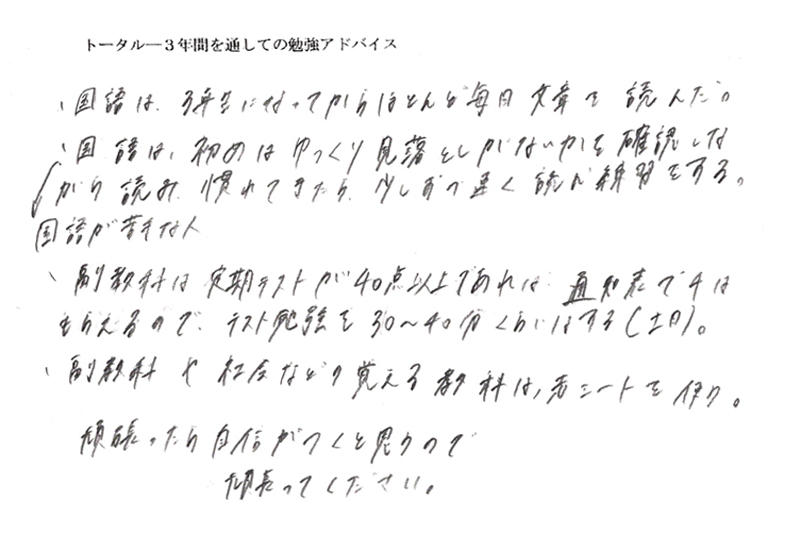 トータル―3年間を通しての勉強アドバイス
、国語は、3年生になってからほとんど毎日文章を読んだ。
、国語は、初めはゆっくり見落としがないかを確認しな
がら読み、慣れてきたら、少しずつ速く読む練習をする。
国語が苦手な人
、副教科は定期テストが40点以上であれば通知表で4は
もらえるので、テスト勉強を30〜40分くらいはする(土日)。
、副教科や社会などの覚える教科は、赤シートを使う。
頑張ったら自信がつくと思うので
頑張ってください。